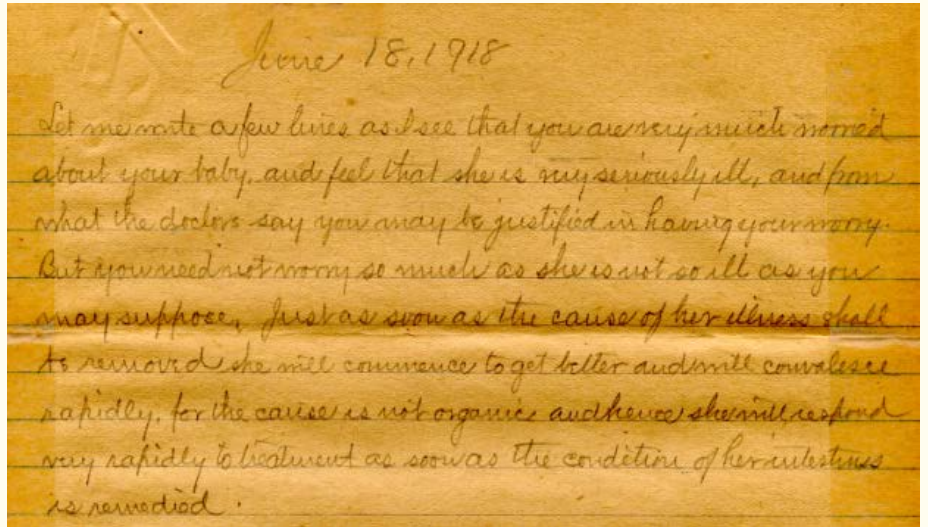 June 18, 1918
Let me write a few lines as I see that you are very much worried
about your baby, and feel that she is very seriously ill, and from
what the doctors say you may be justified in having your worry.
But you need not worry so much as she is not so ill as you
may suppose. Just as soon as the cause of her illness shall
be removed she will commence to get better and will convalesce
rapidly, for the cause is not organic and hence she will respond
very rapidly to treatment as soon as the condition of her intestines
is remedied.